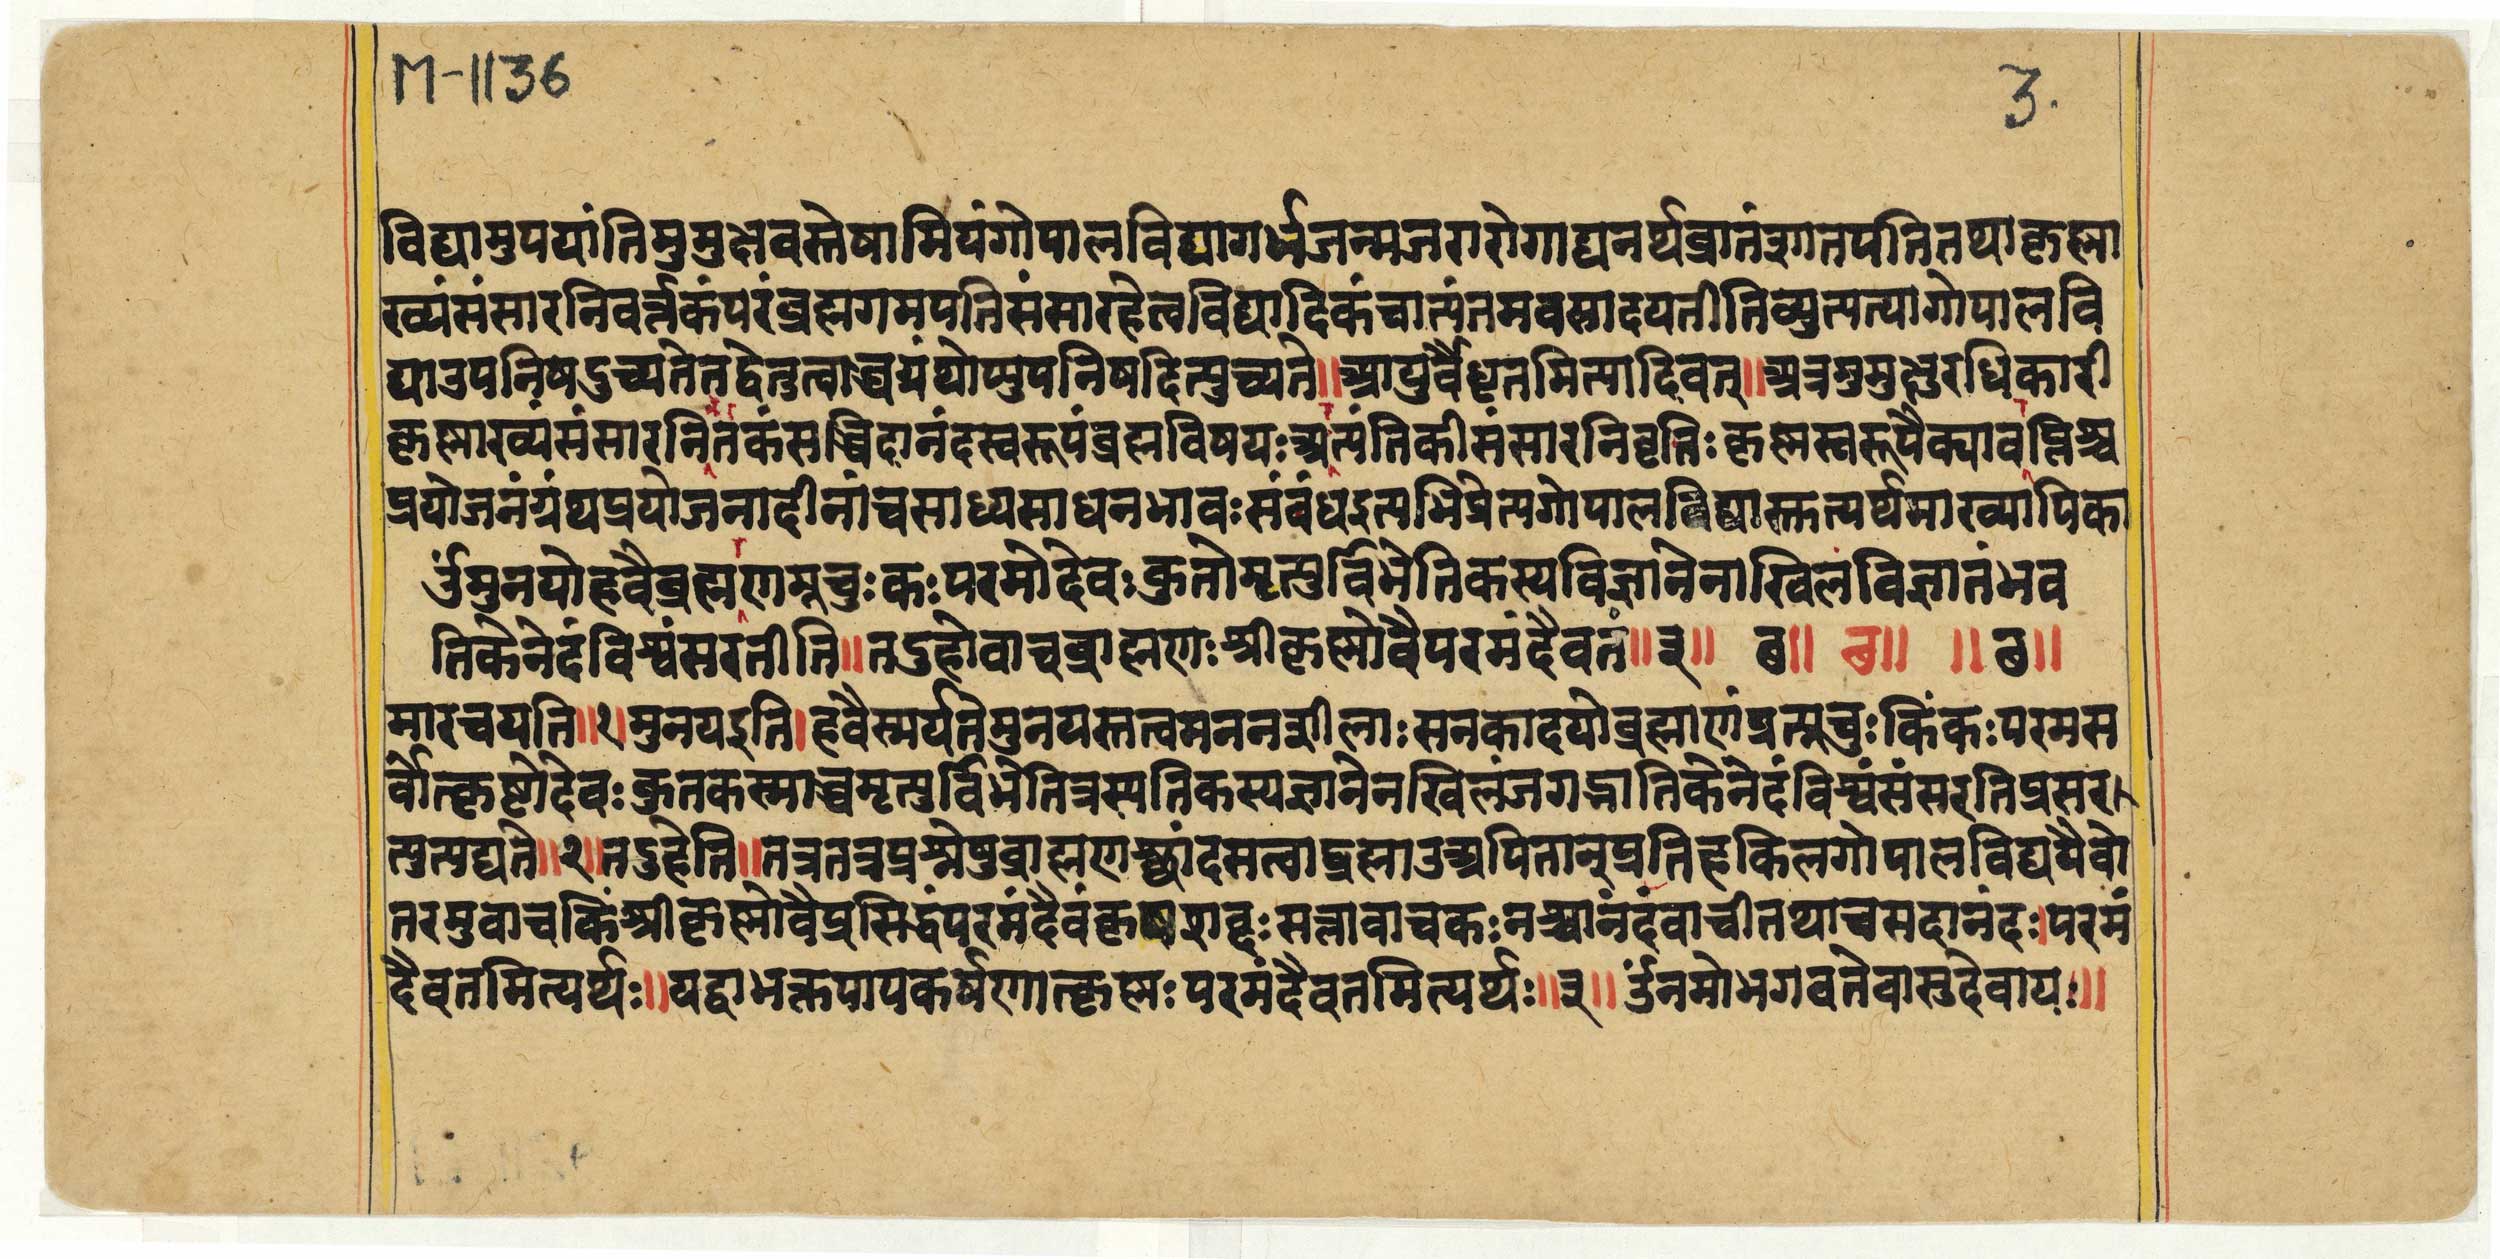 M-1136
3.
विद्यामुपयांतिमुमुक्षवस्तेषामियंगोपालविद्यागर्भजन्मजरारोगाद्यनर्थव्रातंइगतपतितथाकृष्णा
ख्यंसंसारनिवर्त्तकंपरंब्रह्मगमपतिसंसारहेत्वविद्यादिकंचात्यंतमवसादयतीतिव्युत्पत्यागोपालवि
द्याउपनिषदुच्यतेतद्वेतुत्वाच्चयंथोप्युपनिषदित्युच्यते॥आपुर्वैधृतमित्यादिवत्॥अत्रगुमुक्षुरधिकारी
कृष्णाख्यंसंसारनितकंसच्चिदानंदस्वरूपंब्रह्मविषयःअत्यंतिकीसंसारनिवृतिःकृष्णस्वरूपैक्यावप्तिश्च
प्रयोजनंग्रंथप्रयोजनादीनांचसाध्यसाधनभावःसंबंधइत्यभिप्रेत्यगोपालविद्यास्तत्यर्थमाख्यापिका
र्उंमुनयोहवैब्रह्मणमूचुःकःपरमोदेवःकुतोमृत्युर्बिभेतिकस्यविज्ञानेनाखिलंविज्ञातंभव
तिकेनेदंविश्वंसरतीति॥तदुहोवाचब्राह्मणःश्रीकृष्णोवैपरमंदैवतं॥३॥ छ॥ छ॥ ॥छ॥
मारचयति॥१।मुनयइति।हवैस्मर्यतेमुनयस्तत्वमननशीलाःसनकादयोब्रह्माणंप्रत्यूचुःकिंकःपरमस
र्वोत्कृष्टोदेवःकुतकस्माच्चमृत्युर्बिभेतित्रस्यतिकस्यज्ञानेनखिलंजगद्भातिकेनेदंविश्वंसंसरतिप्रसर
त्युत्पद्यते॥२॥तदुहेति॥तत्रतत्रप्रश्नेषुब्राह्मणश्छांदमत्वाद्ब्रह्माउअपितान्प्रतिहकिलगोपालविद्ययैवो
तरमुवाचकिंश्रीकृष्णोवैप्रसिद्धंपरमंदैवंकृष्णशब्दःसत्तावाचकःनश्चानंदंवाचीतथाचसदानंदः।परमं
दैवतमित्यर्थः॥यद्वाभक्तपापकर्षणात्कृष्णःपरमंदैवतमित्यर्थः॥३॥र्उंनमोभगवतेवासुदेवायः॥